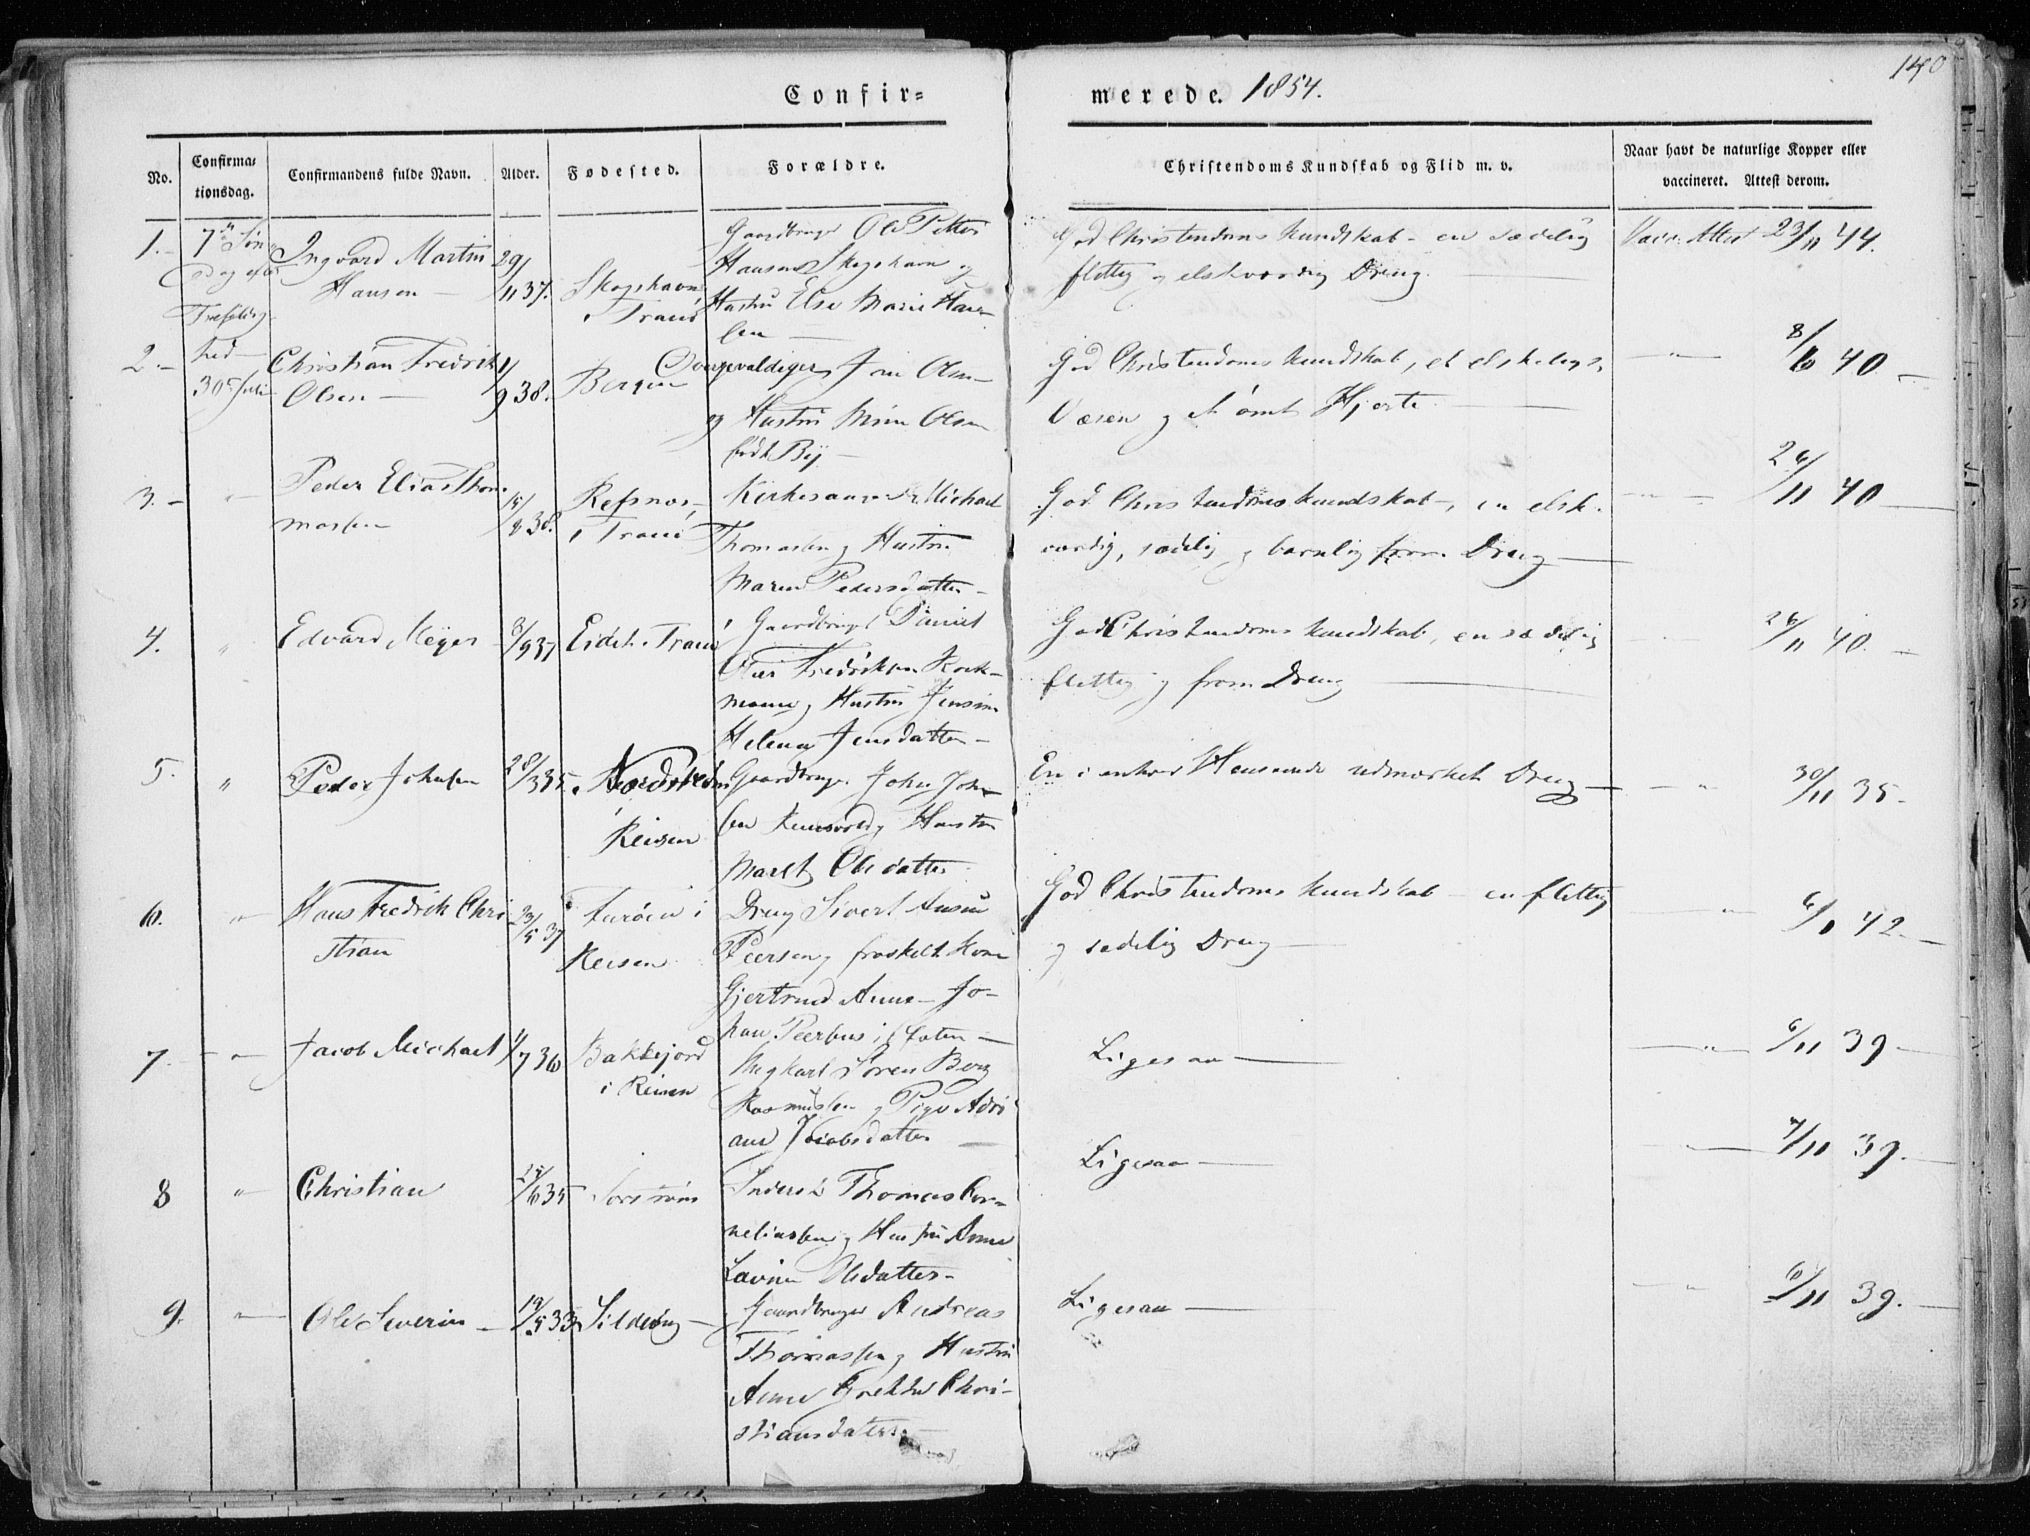 140
Confir-
merede. 1854.
No.
Confirma-
tionsdag.
Confirmandens fulde Navn.
Alder.
Fødested.
Forældre.
Christendoms Kundskab og Flid m. v.
Naar havt de naturlige Kopper eller
vaccineret. Attest derom.
1. 7de Søn-
dag efter
Trefoldig-
hed
30te Juli
Ingvard Martin
Hansen
29/11 37.
Skogshavn
i Tranø
Gaardbruger Ole Petter
Hansen Skogshavn og
Hustru Else Marie Han-
sen
God Christendoms Kundskab - en sædelig
flittig og elskværdig Dreng.
Vacc. Attest 23/11 44.
2 - Christian Fredrik
Olsen
1/9 38.
Bergen
Jon Olsen
og Hustru Olsen
født By
God Christendoms Kundskab, et elskeligt
Væsen og et ømt Hjerte
" 8/6 40
3. - " Peder Elias Thom-
massen
15/8 38.
Refsnæs
i Tranø
Kirkesanger Michael
Thomassen og Hustru
Maren Pedersdatter
God Christendoms Kundskab, en elsk-
værdig, sædelig og barnlig from Dreng
26/11 40
4. " Edvard Meyer
3/9 37
Eidet i Tranø
Gaardbruger Daniel
Fredriksen
og Hustru Jensine
Helena Jensdatter
God Christendoms Kundskab, en sædelig
flittig og from Dreng
26/11 40.
5. " Peder Johnsen
28/3 35.
Nordstrøm
i Reisen
Gaardbruger John John-
sen og Hustru
Maret Olsdatter
En i enhver Henseende udmærket Dreng
" 30/11 35.
6. " Hans Fredrik Chri
stian
23/5 37
Furøen i
Reisen
Dreng Sivert
Peersen og fraskilt Kone
Gjertrud Anna Jo-
han Peersens i
God Christendoms Kundskab - en flittig
og sædelig Dreng
" 6/1 42.
7. " Jacob Michael
1/7 36
Bakkejord
i Reisen
Ungkarl Søren Berg
Rasmussen og Pige Adri
ane Jacobsdatter
Ligesaa
" 6/11 39
8 " Christian
25/6 35
Sørstrøm
Inderst Thomas Cor-
neliussen og Hustru Anne
Lavine Olsdatter
Ligesaa
7/11 39.
9. " Ole Severin
19/5 33
Sildvig
Gaardbruger Andreas
Thomassen og Hustru
Anne Grethe Chri-
stiansdatter.
Ligesaa
" 6/11 39.